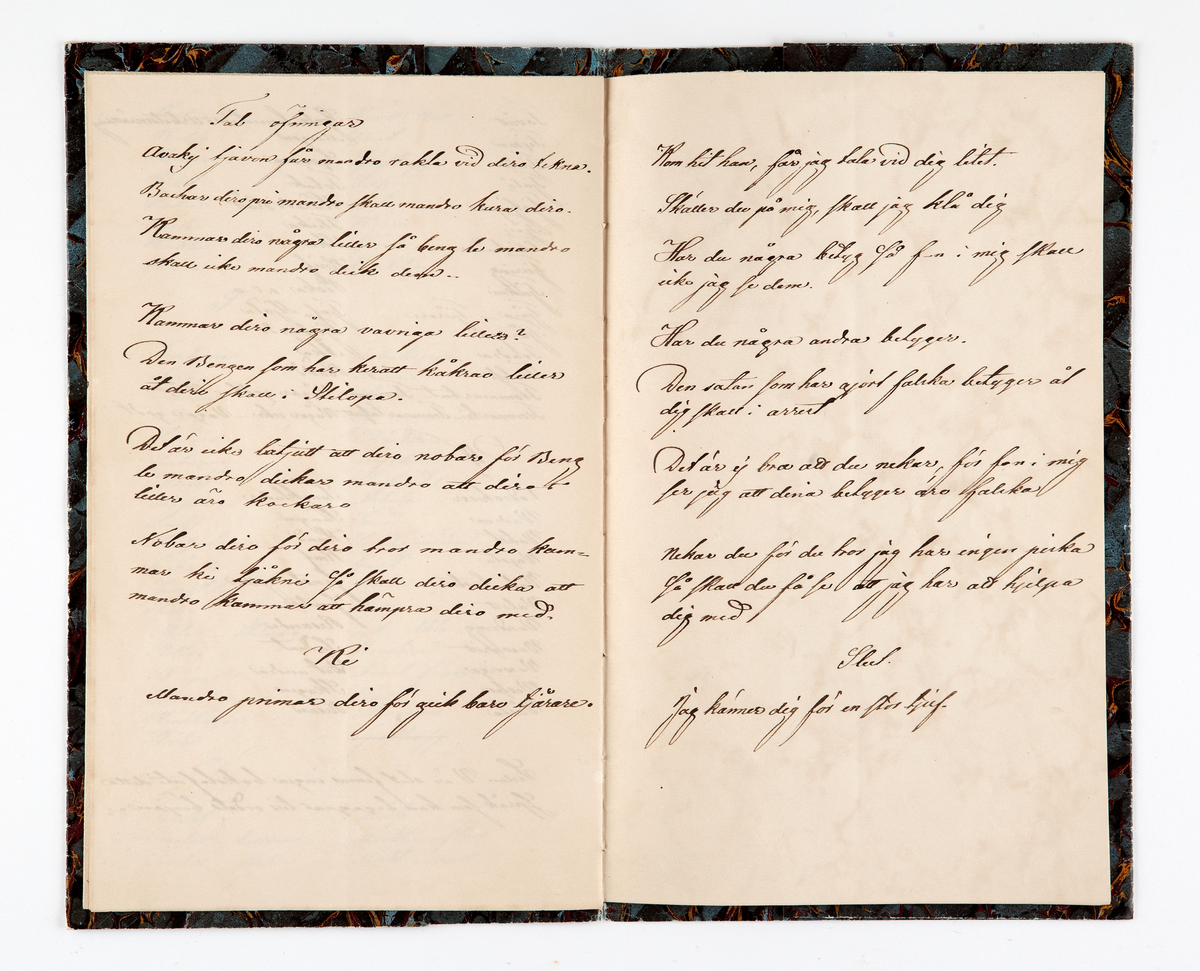 Tal öfningar
Avakij tjavon får mandro rakla vid diro tekna.
Backar diro pri mandro skall mandro kura diro.
Kammar diro några liller så beng le mandro
skall icke mandro dick dem..
Kammar diro några vavriga liller?
Den Bengen som har keratt kåkrao liller
åt diro skall i Stilopa.
Det är icke latjutt att diro nobar för Beng
le mandro dickar mandro att diro
liller äro kockaro
Nobar diro för diro tror mandro kam=
mar ki tjåkni Så skall diro dicka att
mandro kammar att hämpra diro med.
Ki
Mandro primar diro för quik baro tjårare.
Kom hit han, får jag tala vid dig litet.
Skäller du på mig, skall jag klå dig
Har du några betyg Så f-n i mig skall
icke jag se dem.
Har du några andra betyger.
Den satan som har gjort falska betyger åt
dig skall i arrest
Det är ej bra att du nekar, för fan i mig
ser jag att dina betyger äro falska
Nekar du för du tror jag har ingen piska
Så skall du få se att jag har att hjelpa
dig med
Slut.
Jag känner dig för en stor tjuf.